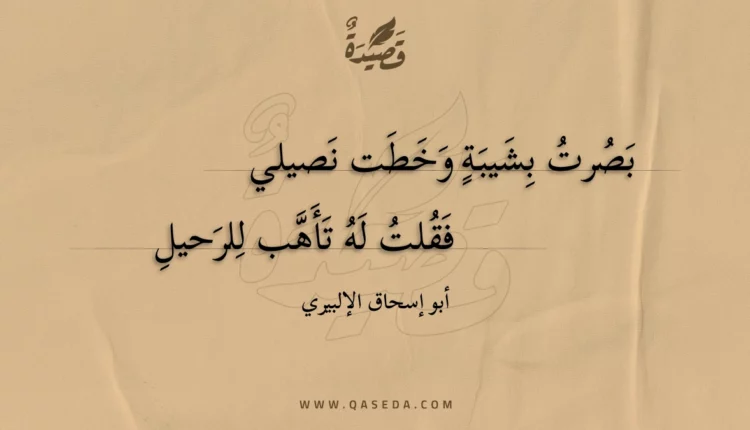 قَصِيْدَةٌ
بَصُرتُ بِشَيبَةٍ وَخَطَت نَصيلي
فَقُلتُ لَهُ تَأَهَّب لِلرَحيلِ
أبو إسحاق الإلبيري
WWW.QASEDA.COM